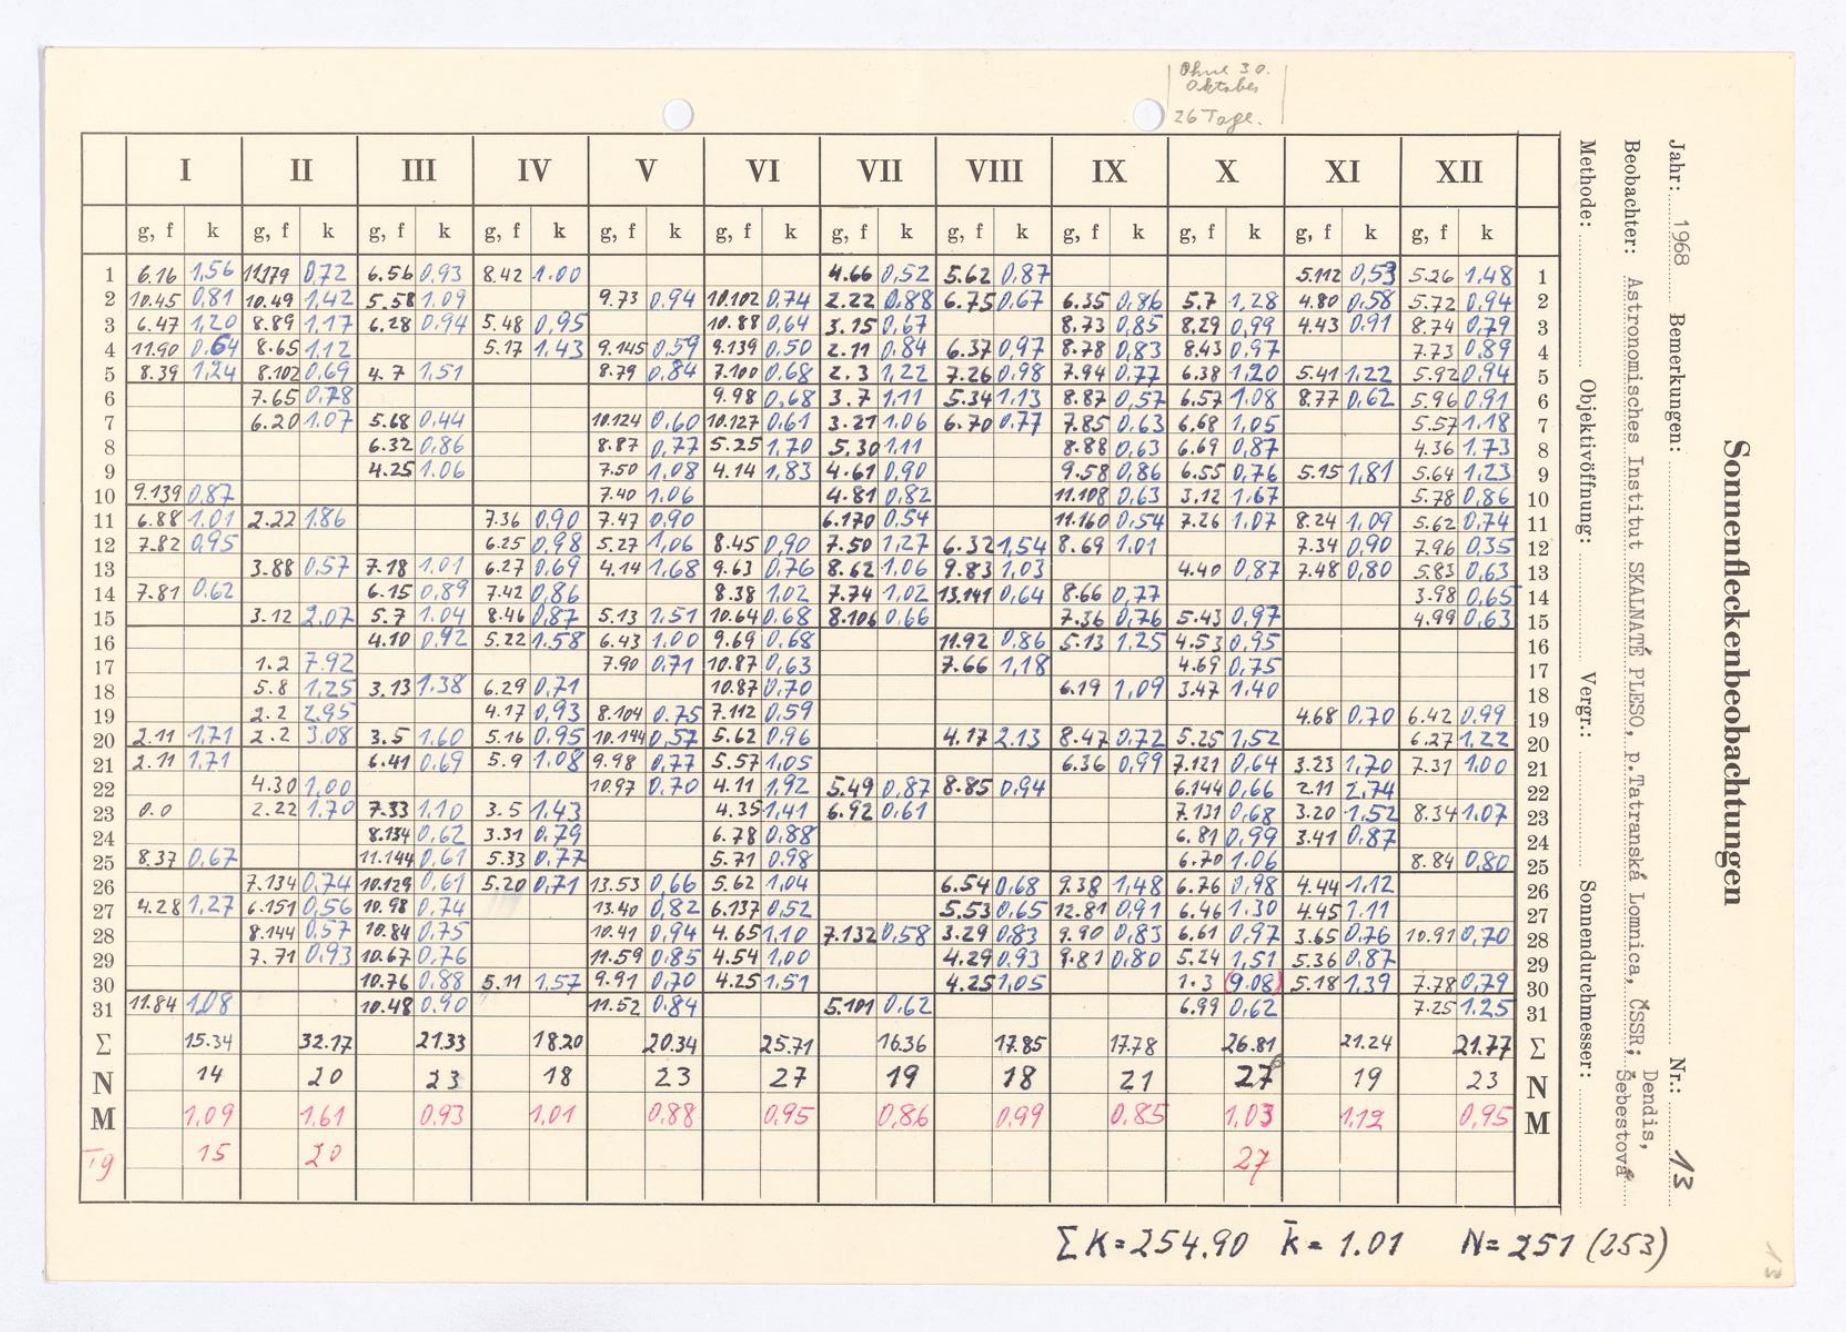 Ohne 30.
Oktober
26 Tage.
I II III IV V VI VII VIII IX X XI XII
g, f k g, f k g, f k g, f k g, f k g, f k g, f k g, f k g, f k g, f k g, f k g, f k
1 6.16 1,56 11.179 0,72 6.56 0,93 8.42 1.00 4.66 0,52 5.62 0,87 5.112 0,53 5.26 1,48 1
2 10.45 0,81 10.49 1,42 5.58 1.09 9.73 0,94 10.102 0,74 2.22 0,88 6.75 0,67 6.35 0,86 5.7 1,28 4.80 0,58 5.72 0,94 2
3 6.47 1,20 8.89 1,17 6.28 0,94 5.48 0,95 10.88 0,64 3.15 0,67 8.73 0,85 8.29 0,99 4.43 0.91 8.74 0,79 3
4 11.90 0.64 8.65 1,12 5.17 1,43 9.145 0,59 9.139 0,50 2.11 0,84 6.37 0,97 8.78 0,83 8.43 0,97 7.73 0,89 4
5 8.39 1,24 8.102 0,69 4.7 1,51 8.79 0,84 7.100 0,68 2.3 1,22 7.26 0,98 7.94 0,77 6.38 1,20 5.41 1,22 5.92 0,94 5
6 7.65 0,78 9.98 0,68 3.7 1,11 5.34 1.13 8.87 0,57 6.57 1,08 8.77 0,62 5.96 0,91 6
7 6.20 1.07 5.68 0,44 10.124 0,60 10.127 0,61 3.21 1,06 6.70 0,77 7.85 0.63 6.68 1,05 5.57 1,18 7
8 6.32 0,86 8.87 0,77 5.25 1,70 5.30 1,11 8.88 0,63 6.69 0,87 4.36 1.73 8
9 4.25 1.06 7.50 1,08 4.14 1,83 4.61 0,90 9.58 0,86 6.55 0,76 5.15 1,81 5.64 1,23 9
10 9.139 0,87 7.40 1,06 4.81 0,82 11.108 0,63 3.12 1,67 5.78 0,86 10
11 6.88 1,01 2.22 1.86 7.36 0,90 7.47 0,90 6.170 0,54 11.160 0,54 7.26 1,07 8.24 1,09 5.62 0,74 11
12 7.82 0,95 6.25 0,98 5.27 1,06 8.45 0,90 7.50 1,27 6.32 1,54 8.69 1,01 7.34 0,90 7.96 0,35 12
13 3.88 0,57 7.18 1.01 6.27 0,69 4.14 1,68 9.63 0,76 8.62 1.06 9.83 1,03 4.40 0,87 7.48 0,80 5.83 0,63 13
14 7.81 0.62 6.15 0,89 7.42 0,86 8.38 1,02 7.74 1,02 13.141 0,64 8.66 0,77 3.98 0,65 14
15 3.12 2,07 5.7 1.04 8.46 0,87 5.13 1.51 10.64 0.68 8.106 0,66 7.36 0,76 5.43 0,97 4.99 0,63 15
16 4.10 0,92 5.22 1.58 6.43 1.00 9.69 0,68 11.92 0,86 5.13 1,25 4.53 0,95 16
17 1.2 7.92 7.90 0,71 10.87 0,63 7.66 1,18 4.69 0,75 17
18 5.8 1,25 3.13 1.38 6.29 0,71 10.87 0,70 6.19 1,09 3.47 1,40 18
19 2.2 2.95 4.17 0,93 8.104 0.75 7.112 0,59 4.68 0,70 6.42 0,99 19
20 2.11 1,71 2.2 3.08 3.5 1,60 5.16 0,95 10.144 0,57 5.62 0,96 4.17 2.13 8.47 0,72 5.25 1,52 6.27 1,22 20
21 2.11 1,71 6.41 0,69 5.9 1,08 9.98 0,77 5.57 1,05 6.36 0,99 7.121 0,64 3.23 1,70 7.31 1.00 21
22 4.30 1,00 10.97 0,70 4.11 1,92 5.49 0,87 8.85 0,94 6.144 0,66 2.11 2,74 22
23 0.0 2.22 1.70 7.33 1.10 3.5 1,43 4.35 1,41 6.92 0,61 7.131 0,68 3.20 1,52 8.34 1,07 23
24 8.134 0,62 3.31 0,79 6.78 0,88 6.81 0,99 3.41 0,87 24
25 8.37 0,67 11.144 0,61 5.33 0,77 5.71 0,98 6.70 1.06 8.84 0,80 25
26 7.134 0,74 10.129 0,61 5.20 0,71 13.53 0,66 5.62 1,04 6.54 0,68 9.38 1,48 6.76 0,98 4.44 1,12 26
27 4.28 1,27 6.151 0,56 10.98 0,74 13.40 0,82 6.137 0,52 5.53 0,65 12.81 0,91 6.46 1.30 4.45 1.11 27
28 8.144 0,57 10.84 0,75 10.41 0,94 4.65 1,10 7.132 0,58 3.29 0,83 9.90 0,83 6.61 0,97 3.65 0,76 10.91 0,70 28
29 7.71 0,93 10.67 0,76 11.59 0,85 4.54 1,00 4.29 0.93 9.81 0,80 5.24 1,51 5.36 0,87 29
30 10.76 0,88 5.11 1,57 9.91 0,70 4.25 1.51 4.25 1,05 1.3 (9.08) 5.18 1,39 7.78 0,79 30
31 11.84 1,08 10.48 0,90 11.52 0,84 5.101 0,62 6.99 0,62 7.25 1.25 31
Σ 15.34 32.17 21.33 18.20 20.34 25.71 16.36 17.85 17.78 26.81 21.24 21.77 Σ
N 14 20 23 18 23 27 19 18 21 27 6 19 23 N
M 1,09 1,61 0,93 1,01 0,88 0,95 0,86 0,99 0,85 1,03 1,12 0,95 M
Tg 15 20 27
ΣK=254.90 k̄= 1.01 N= 251 (253)
Sonnenfleckenbeobachtungen
Jahr: 1968 Bemerkungen: Nr.: 13
Beobachter: Astronomisches Institut SKALNATÉ PLESO, p.Tatranská Lomnica, ČSSR; Dendis, Šebestová
Methode: Objektivöffnung: Vergr.: Sonnendurchmesser:
13